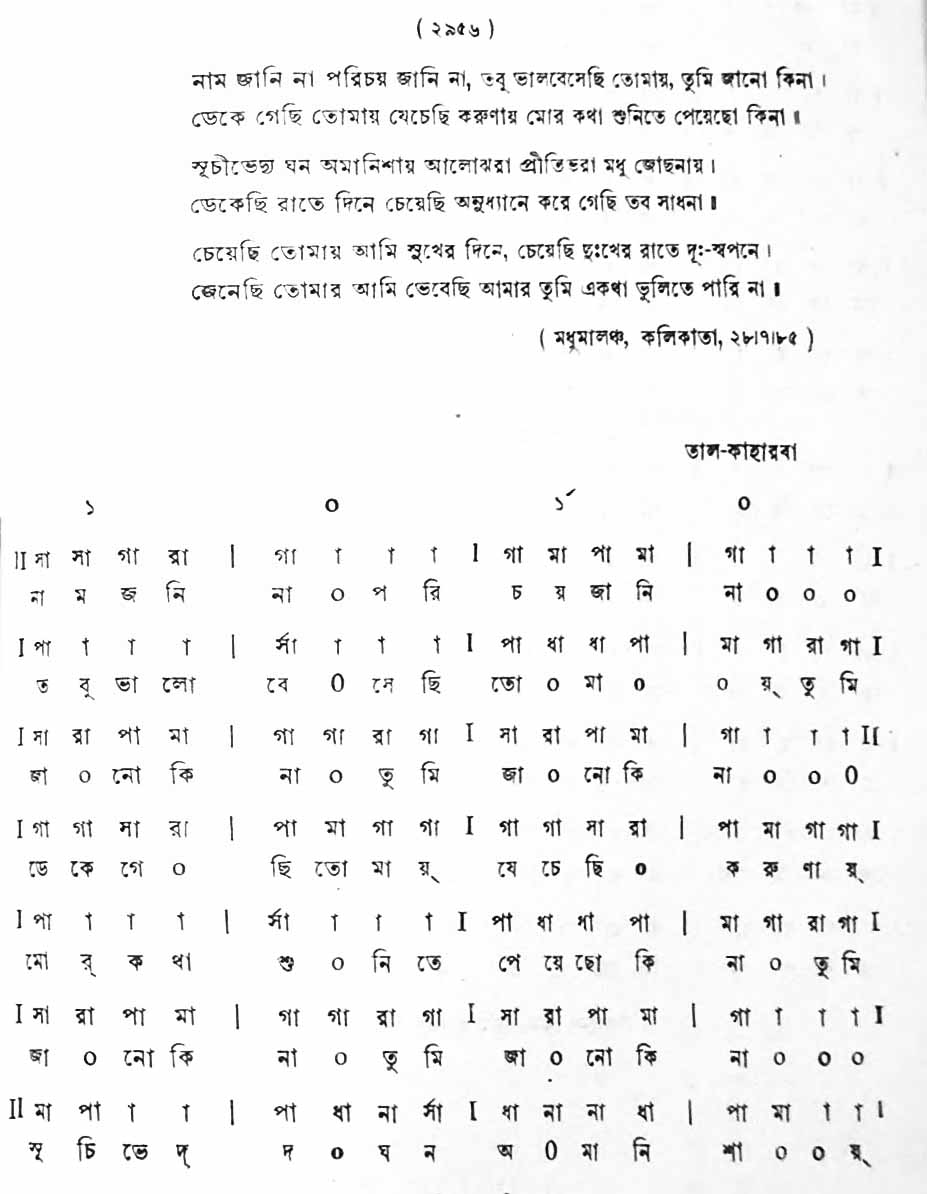 ( ২৯৫৬ )
নাম জানি না পরিচয় জানি না, তবু ভালবেসেছি তোমায়, তুমি জানো কিনা ।
ডেকে গেছি তোমায় যেচেছি করুণায় মোর কথা শুনিতে পেয়েছো কিনা ॥
সূচীভেদ্য ঘন অমানিশায় আলোঝরা প্রীতিভরা মধু জোছনায় ।
ডেকেছি রাতে দিনে চেয়েছি অনুধ্যানে করে গেছি তব সাধনা ॥
চেয়েছি তোমায় আমি সুখের দিনে, চেয়েছি দুঃখের রাতে দূঃ-স্বপনে ।
জেনেছি তোমার আমি ভেবেছি আমার তুমি একথা ভুলিতে পারি না ॥
( মধুমালঞ্চ, কলিকাতা, ২৮।৭।৮৫ )
তাল-কাহারবা
১ ০ ১´ ০
II সা সা গা রা | গা া া া I গা মা পা মা | গা া া া I
না ম জ নি না ০ প রি চ য় জা নি না ০ ০ ০
I পা া া া | র্সা া া া I পা ধা ধা পা | মা গা রা গা I
ত বু ভা লো বে ০ সে ছি তো ০ মা ০ ০ য়্ তু মি
I সা রা পা মা | গা গা রা গা I সা রা পা মা | গা া া া II
জা ০ নো কি না ০ তু মি জা ০ নো কি না ০ ০ ০
I গা গা সা রা | পা মা গা গা I গা গা সা রা | পা মা গা গা I
ডে কে গে ০ ছি তো মা য়্ যে চে ছি ০ ক রু ণা য়্
I পা া া া | র্সা া া া I পা ধা ধা পা | মা গা রা গা I
মো র্ ক থা শু ০ নি তে পে য়ে ছো কি না ০ তু মি
I সা রা পা মা | গা গা রা গা I সা রা পা মা | গা া া া I
জা ০ নো কি না ০ তু মি জা ০ নো কি না ০ ০ ০
II মা পা া া | পা ধা না র্সা I ধা না না ধা | পা মা া া I
সূ চি ভে দ্ দ ০ ঘ ন অ ০ মা নি শা ০ ০ য়্